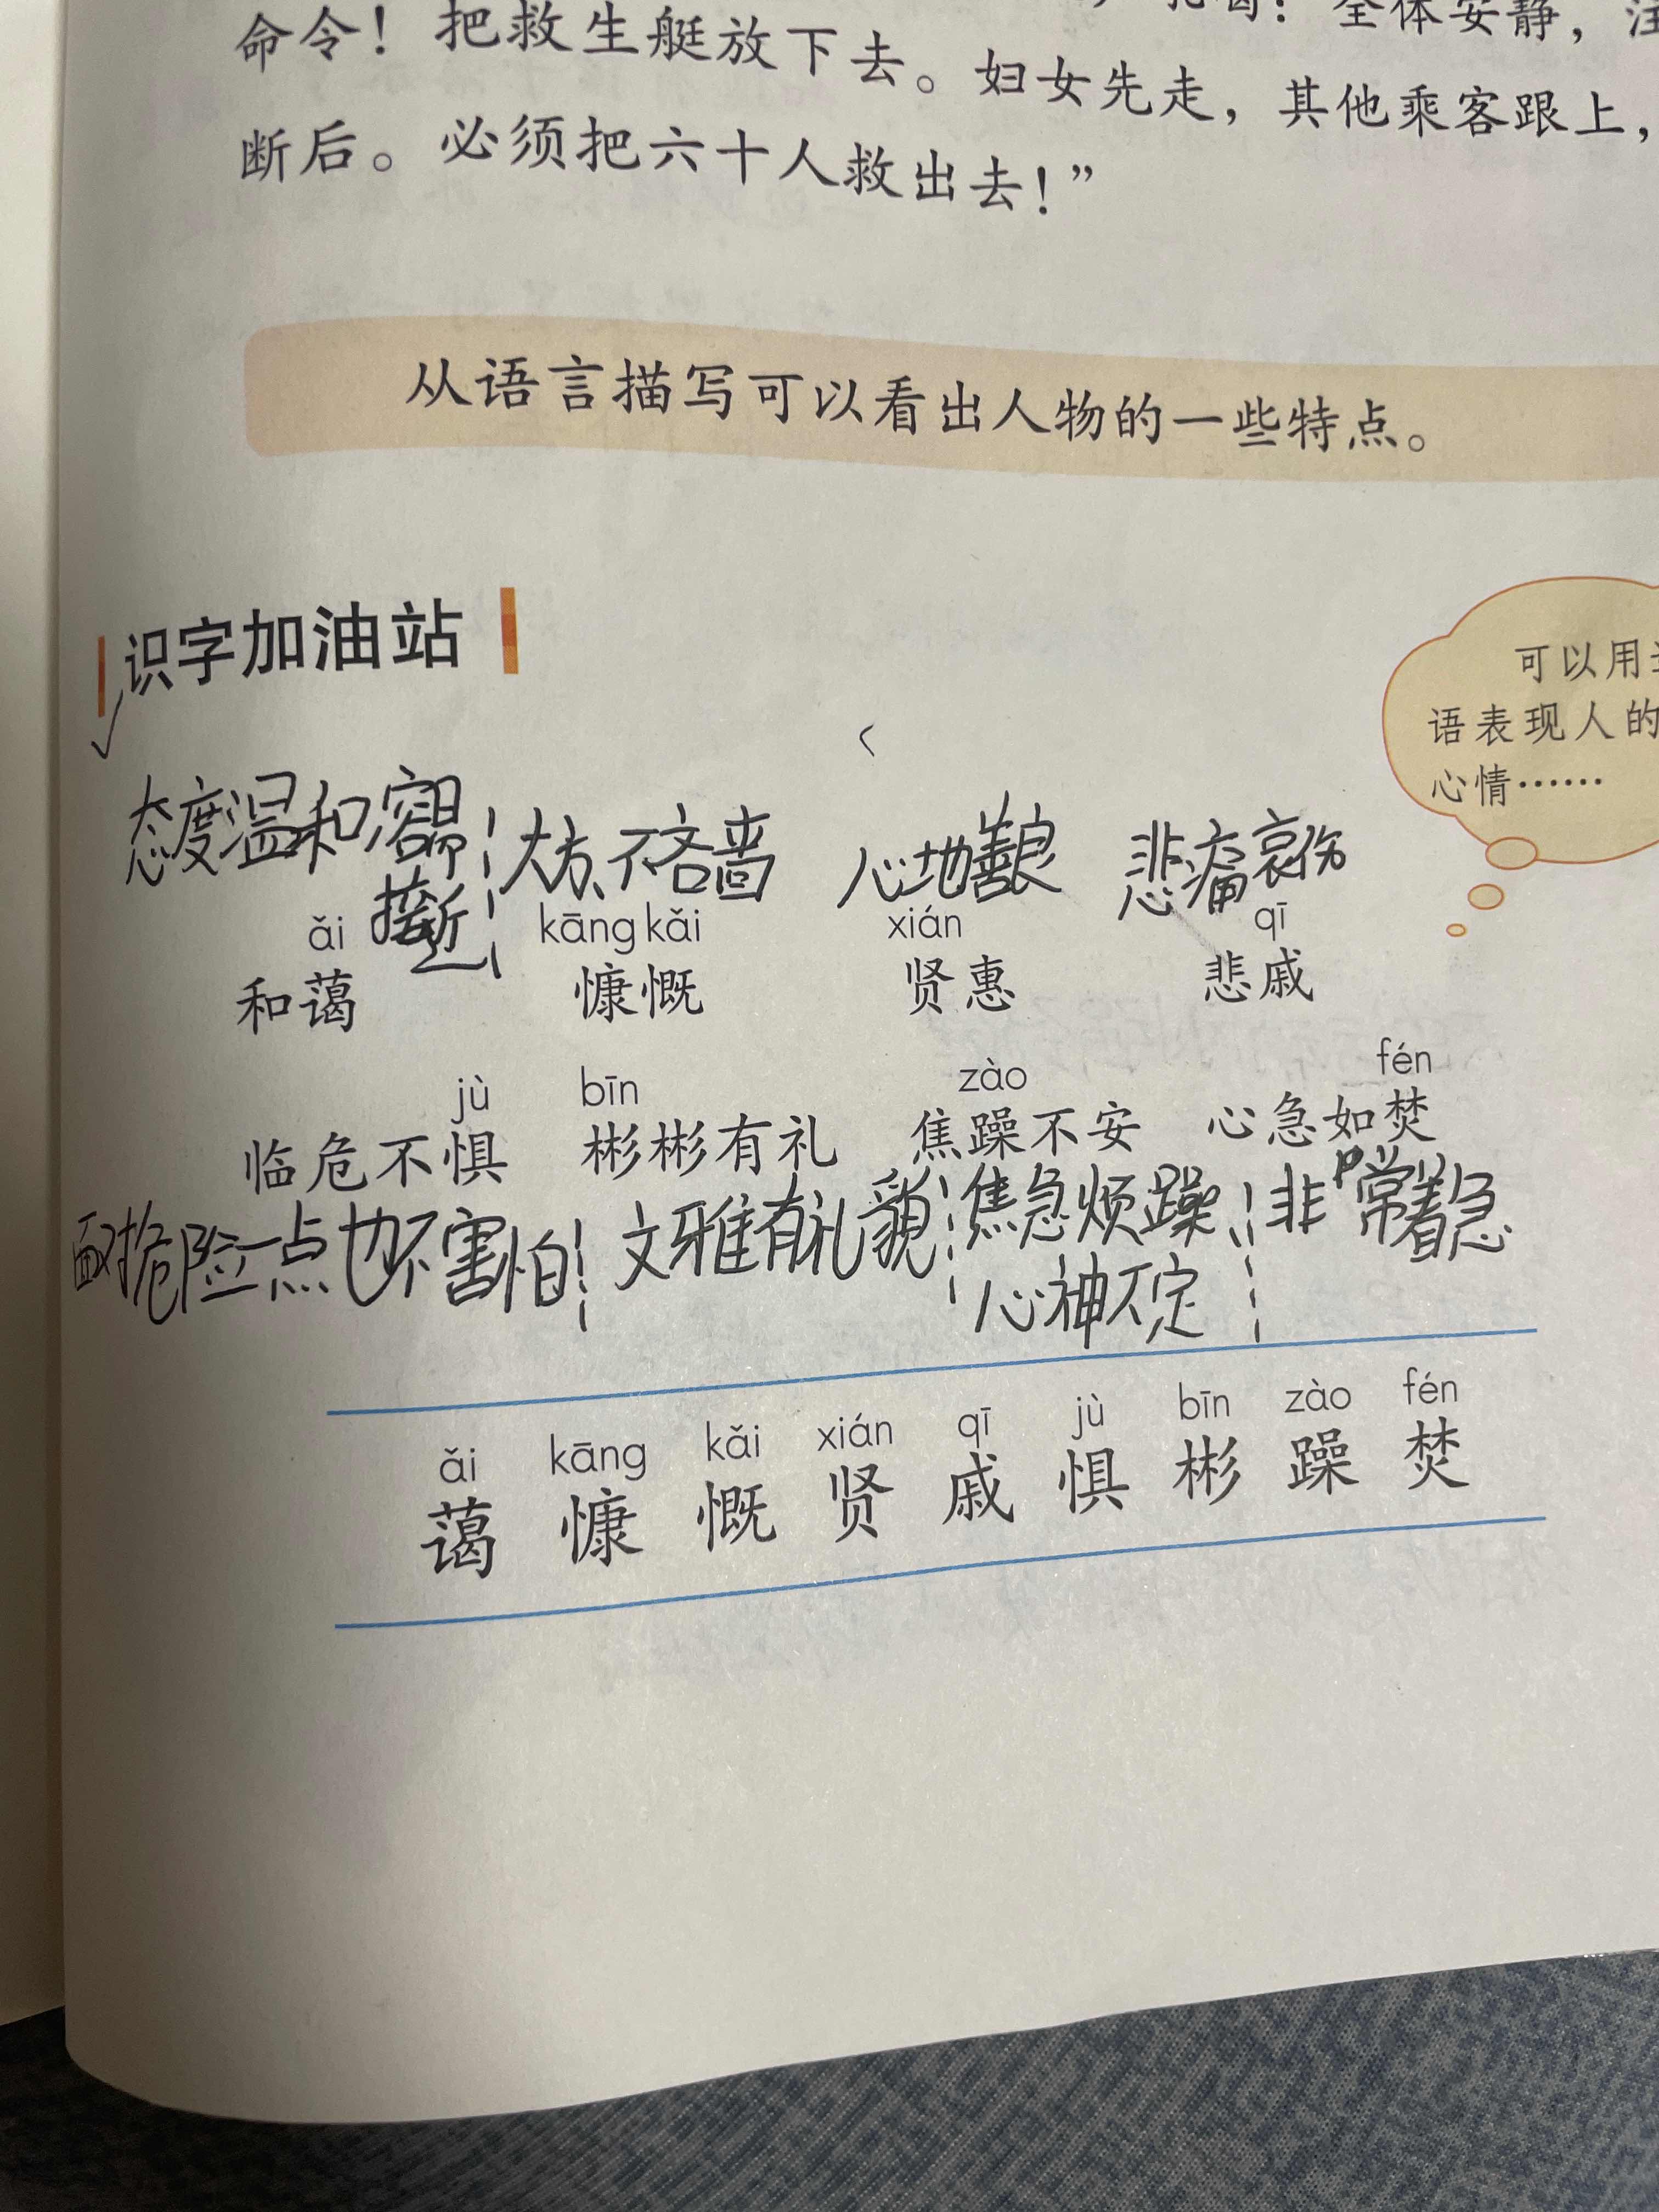 全体安静，
命令！把救生艇放下去。妇女先走，其他乘客跟上，
断后。必须把六十人救出去！”
从语言描写可以看出人物的一些特点。
识字加油站
可以用
语表现人的
心情……
态度温和,容易 大方、不吝啬 心地善良 悲痛哀伤
接近
ǎi kāng kǎi xián qī
和蔼 慷慨 贤惠 悲戚
jù bīn zào fén
临危不惧 彬彬有礼 焦躁不安 心急如焚
面对危险一点也不害怕 文雅有礼貌 焦急烦躁、 非常着急
心神不定
ǎi kāng kǎi xián qī jù bīn zào fén
蔼 慷 慨 贤 戚 惧 彬 躁 焚